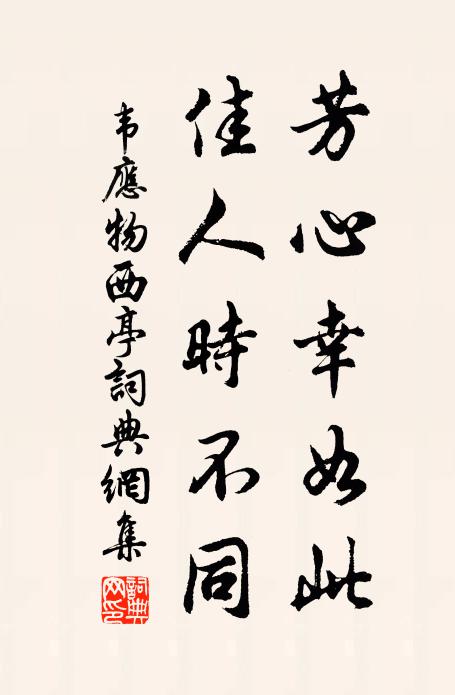 芳心幸如此
佳人時不同
韦應物西亭詞典網集
詞典网印